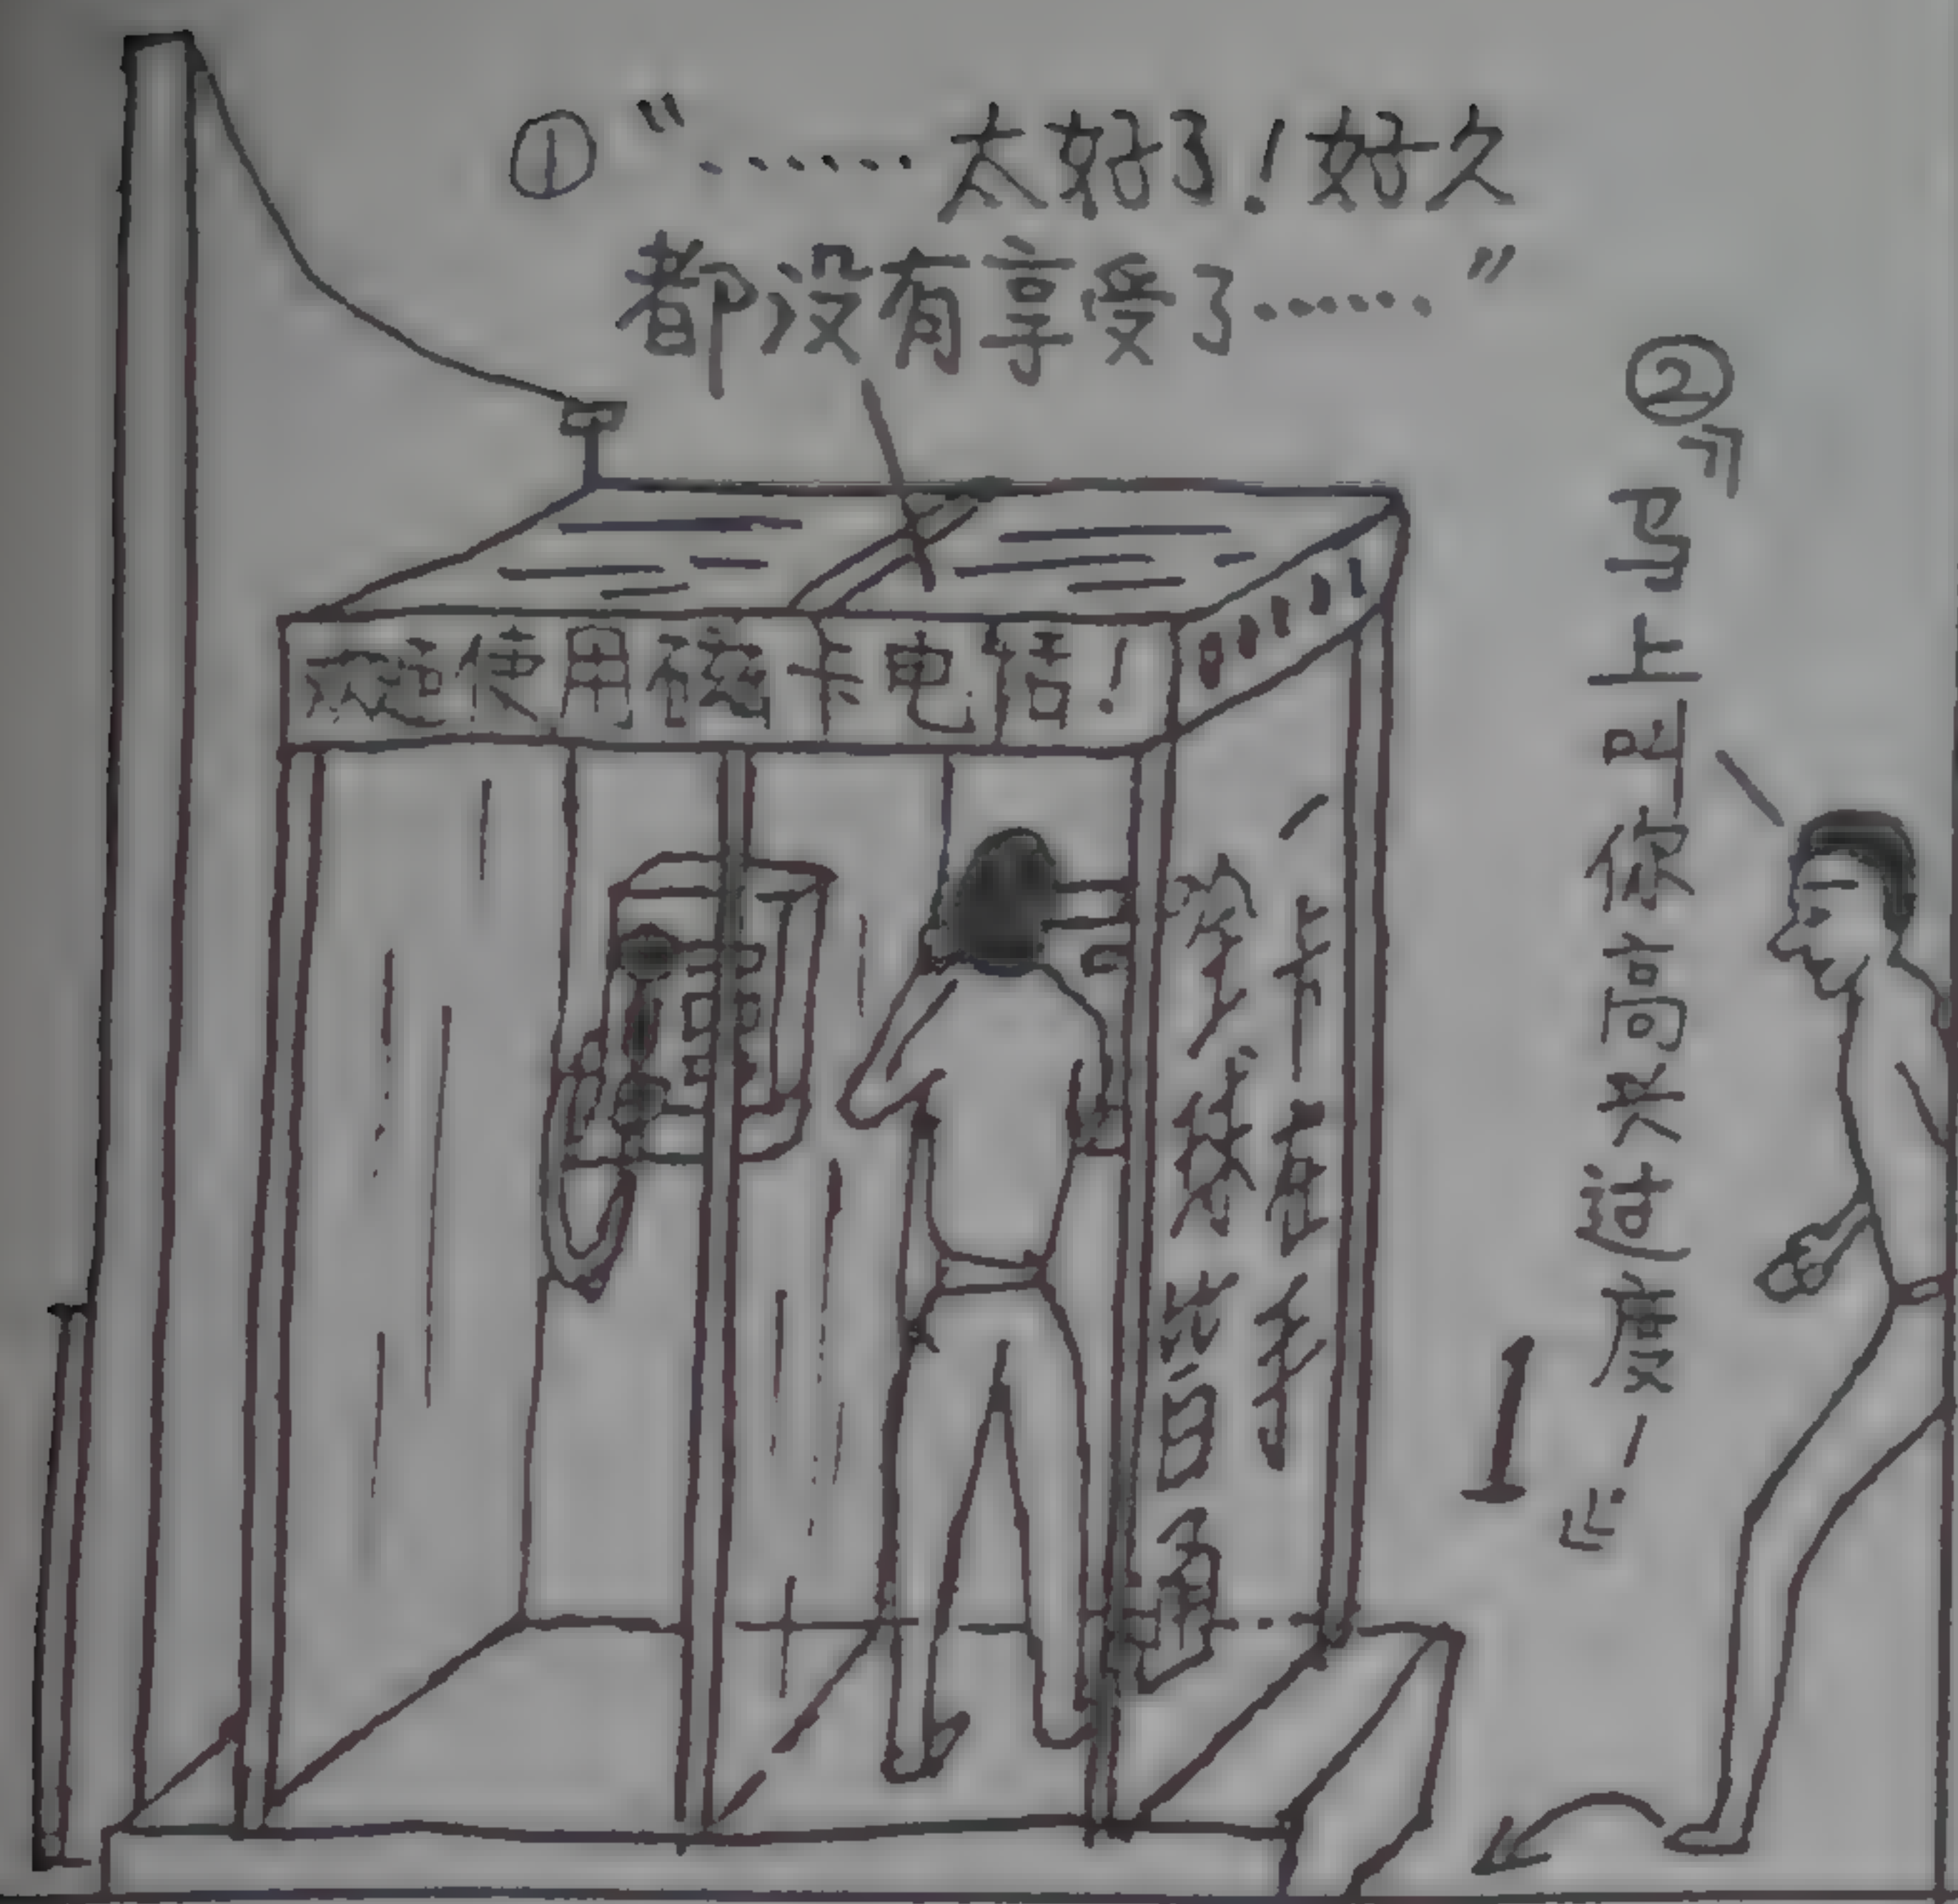 ①“……太好了！好久
都没有享受了……”
②『马上叫你高兴过度！』
欢迎使用磁卡电话！
一卡在手
全球皆通